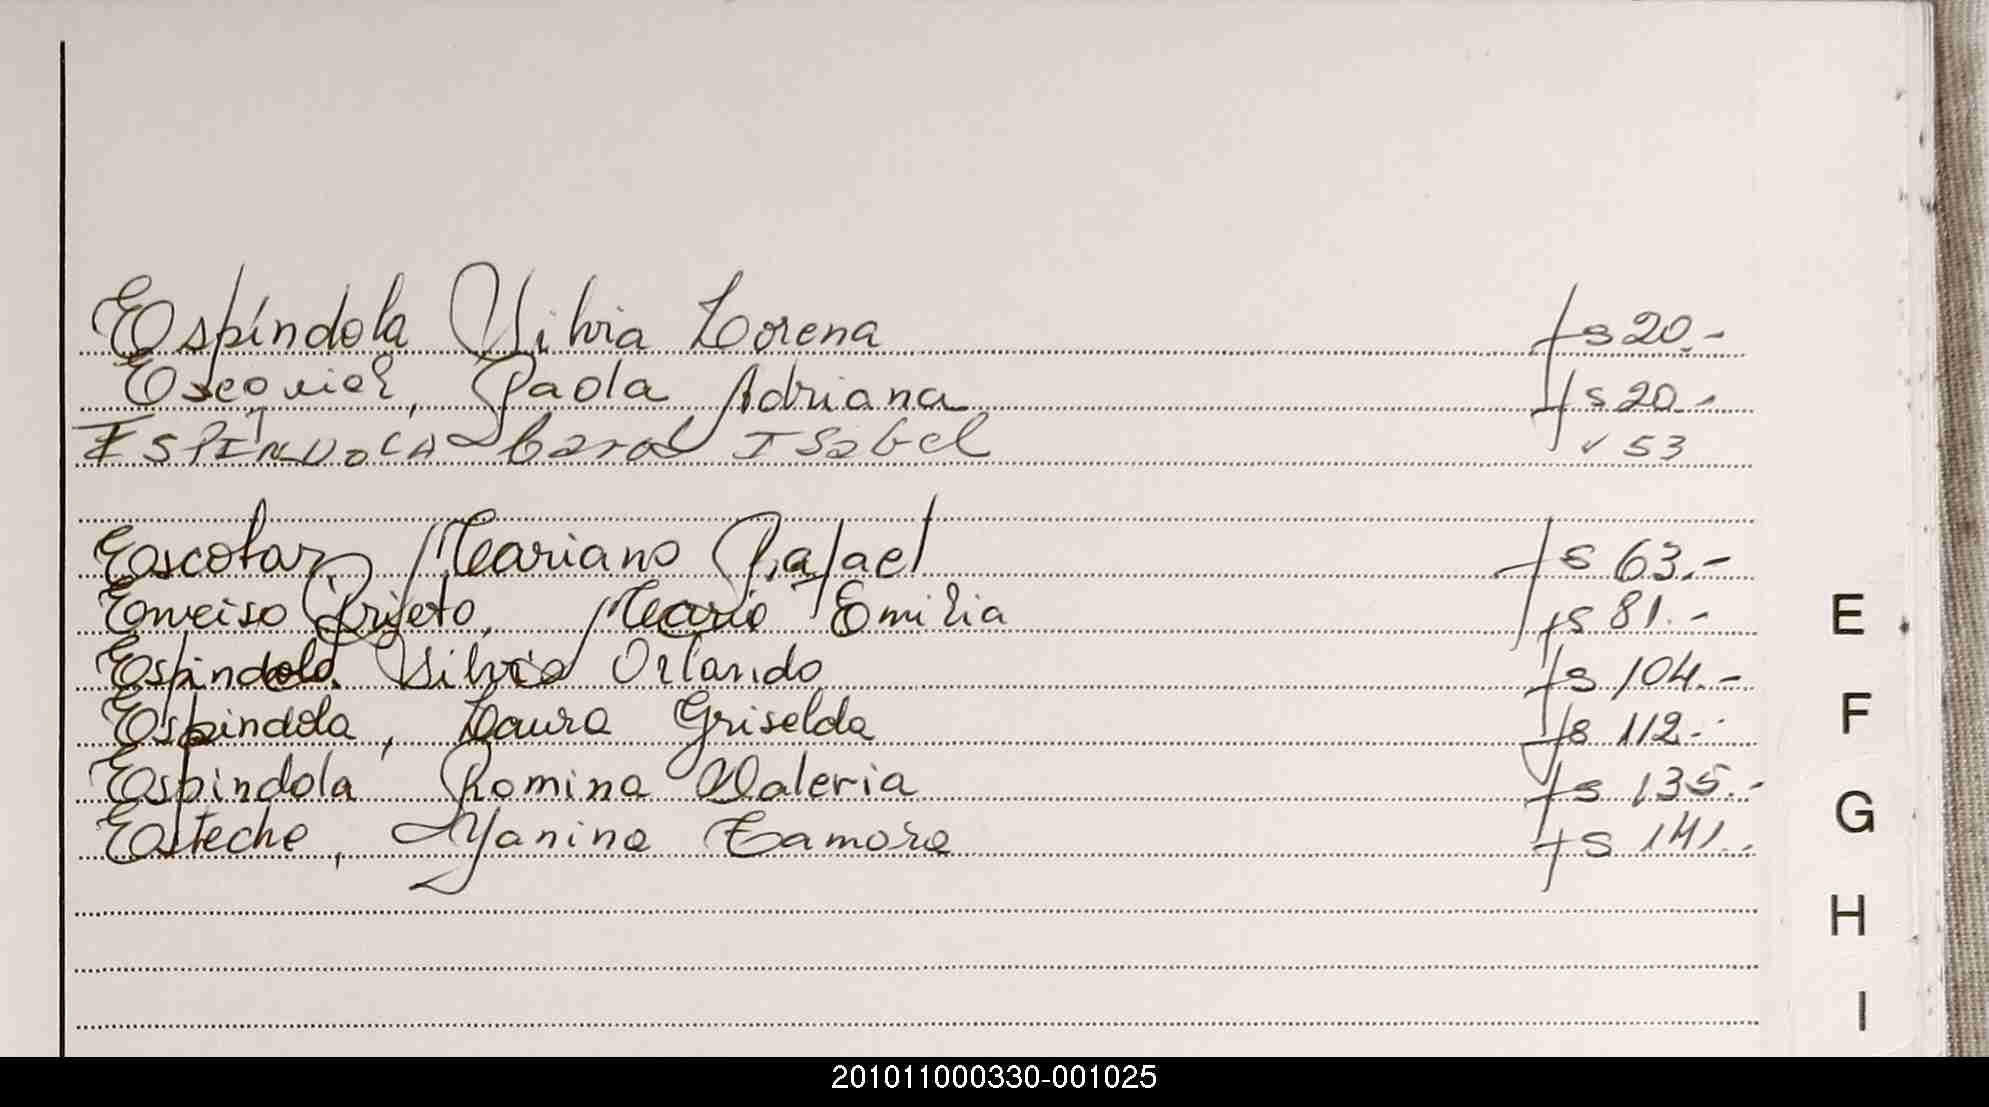 Espíndola Silvia Lorena fs 20.-
Esequiel, Paola Adriana fs 20.-
ESPINDOLA Carol ISabel v 53
Escobar, Mariano Rafael fs 63.-
Enveiso Prijeto, Mario Emilia fs 81.-
Espindola Silvio Orlando fs 104.-
Espindola, Laura Griselda fs 112.-
Espindola Romina Valeria fs 135.-
Esteche, Yanina Tamara fs 141.-
E
F
G
H
I
201011000330-001025